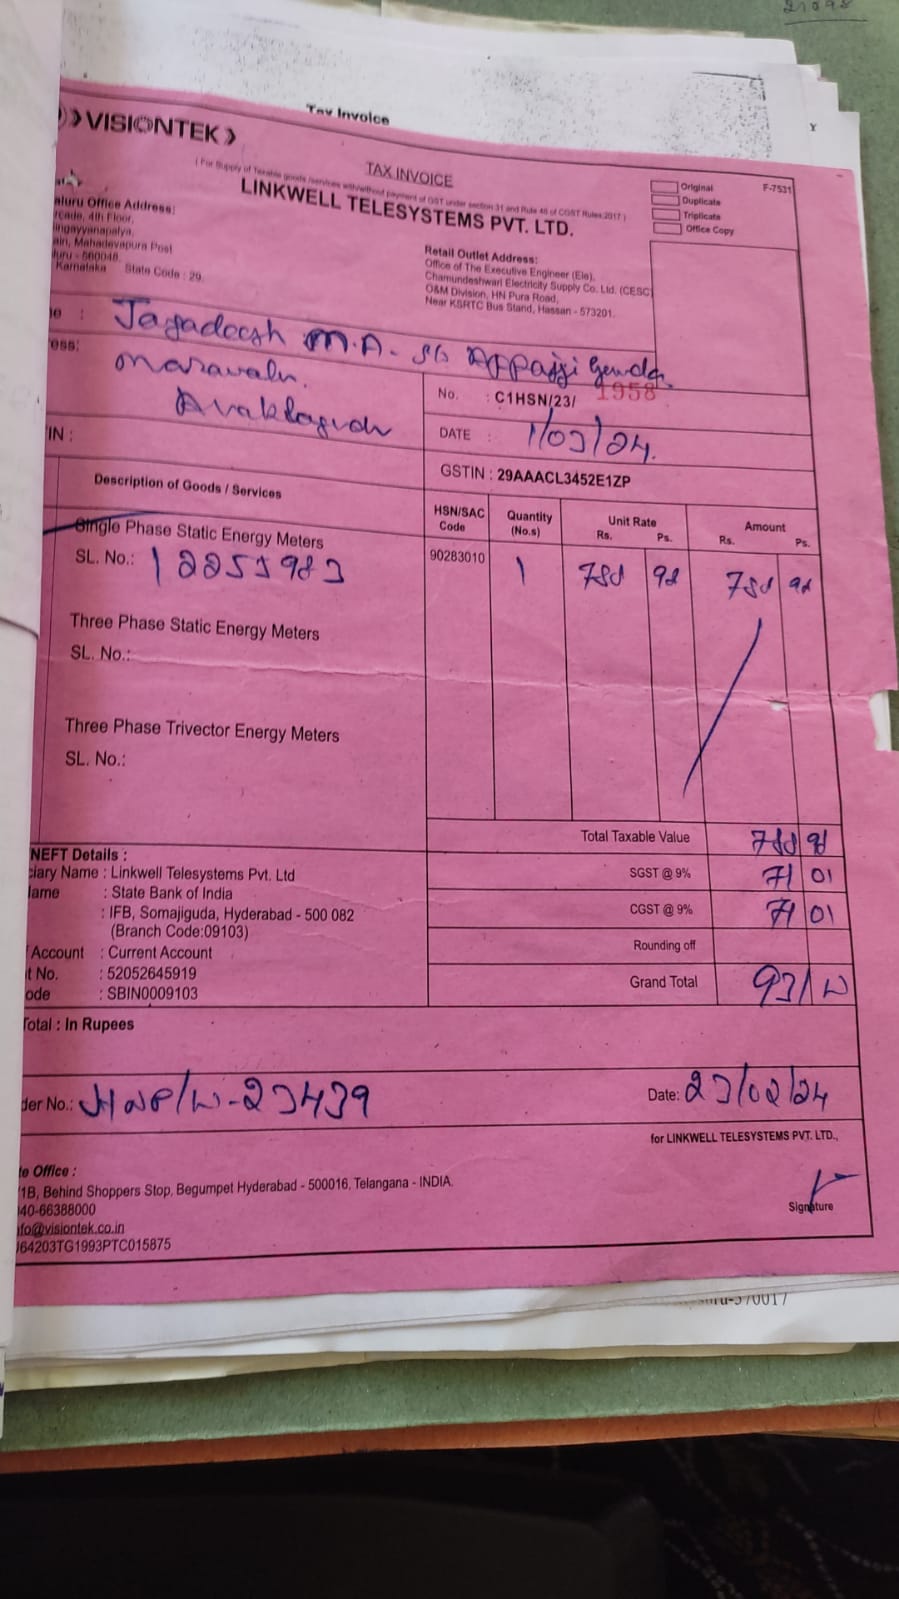 21098
Tax Invoice
Y
VISIONTEK
TAX INVOICE
( For Supply of Taxable goods /services with/without payment of GST under section 31 and Rule 46 of CGST Rules 2017 )
LINKWELL TELESYSTEMS PVT. LTD.
Original
F-7531
Duplicate
Triplicate
Office Copy
aluru Office Address:
rcade, 4th Floor,
ingayyanapalya,
alri, Mahadevapura Post
luru - 560048.
Karnataka State Code : 29.
Retail Outlet Address:
Office of The Executive Engineer (Ele),
Chamundeshwari Electricity Supply Co. Ltd. (CESC)
O&M Division, HN Pura Road,
Near KSRTC Bus Stand, Hassan - 573201.
e : Jagadeesh M.A- S/o Appajji Gowda
ess: Maravalu.
No. : C1HSN/23/ 1958
DATE : 1/03/24.
IN :
GSTIN : 29AAACL3452E1ZP
Description of Goods / Services
HSN/SAC Code
Quantity (No.s)
Unit Rate Rs. Ps.
Amount Rs. Ps.
Single Phase Static Energy Meters
SL. No.: 12253983
90283010 1
Three Phase Static Energy Meters
SL. No.:
Three Phase Trivector Energy Meters
SL. No.:
Total Taxable Value
SGST @ 9% 71 01
CGST @ 9% 71 01
Rounding off
Grand Total 931/
NEFT Details :
ciary Name : Linkwell Telesystems Pvt. Ltd
lame : State Bank of India
: IFB, Somajiguda, Hyderabad - 500 082
(Branch Code:09103)
Account : Current Account
t No. : 52052645919
ode : SBIN0009103
Total : In Rupees
der No.:
Date: 23/02/24
for LINKWELL TELESYSTEMS PVT. LTD.,
te Office :
1B, Behind Shoppers Stop, Begumpet Hyderabad - 500016, Telangana - INDIA.
40-66388000
nfo@visiontek.co.in
J64203TG1993PTC015875
Signature